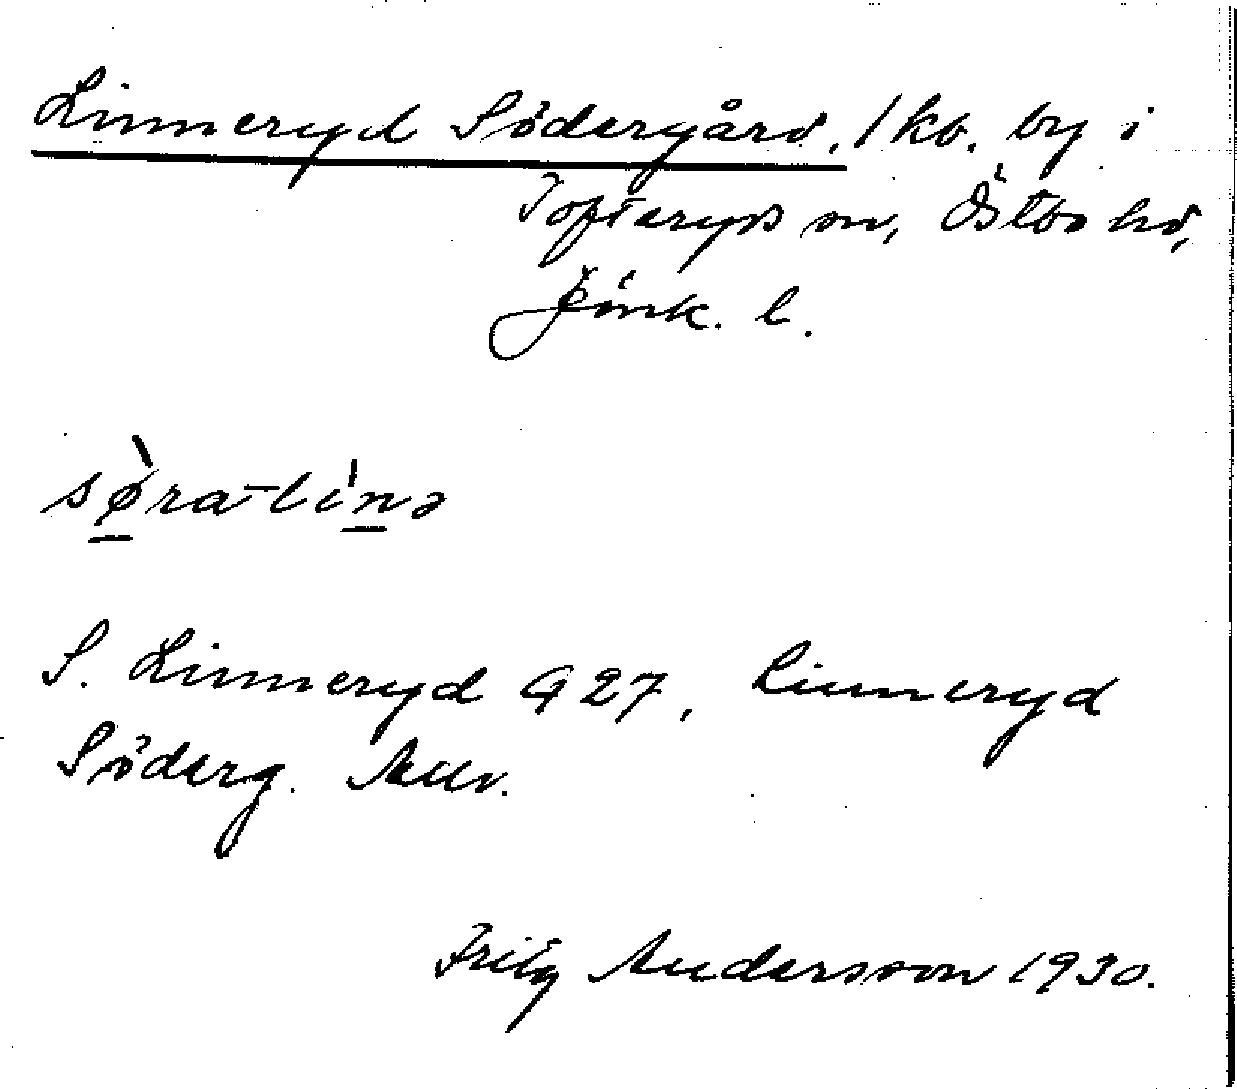 Linneryd Södergård, 1 kb. by i
Tofteryds sn, Östbo hd,
Jönk. l.
sø̀ra-linə
S. Linneryd G 27, Linneryd
Söderg. Allv.
Fritz Andersson 1930.